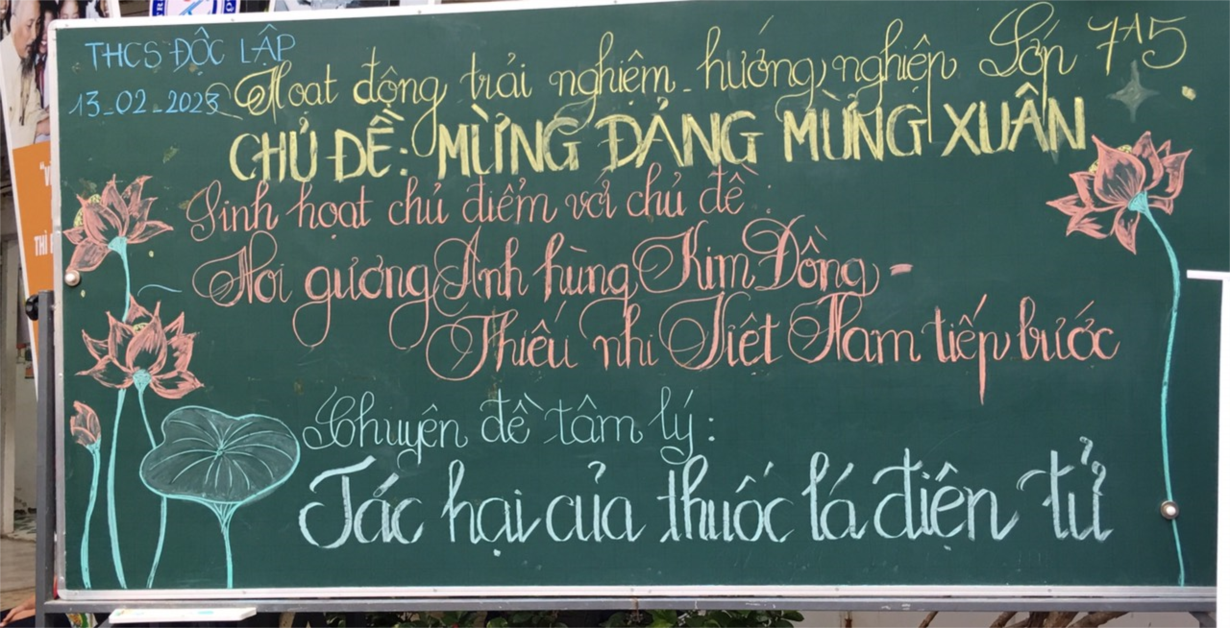 THCS ĐỘC LẬP
13-02-2023
Hoạt động trải nghiệm, hướng nghiệp Lớp 7A5
CHỦ ĐỀ: MỪNG ĐẢNG MỪNG XUÂN
Sinh hoạt chủ điểm với chủ đề:
Noi gương Anh hùng Kim Đồng -
Thiếu nhi Việt Nam tiếp bước
Chuyên đề tâm lý:
Tác hại của thuốc lá điện tử